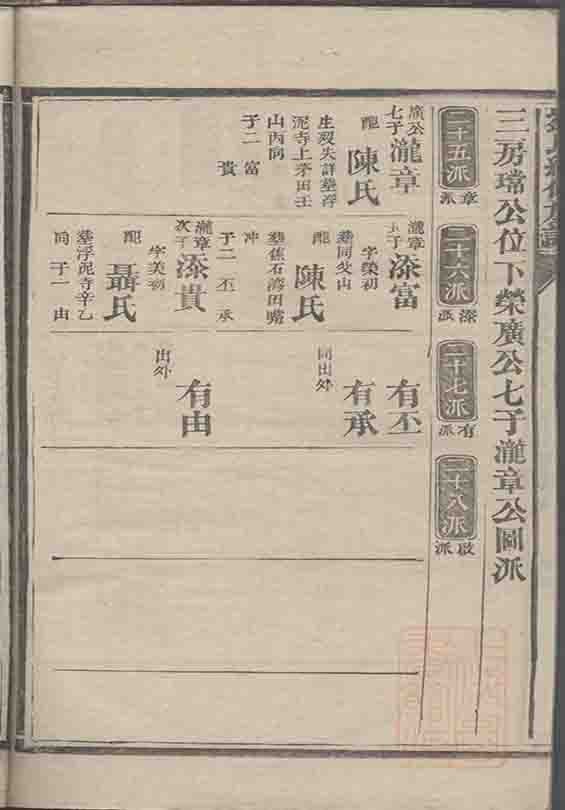 三房璫公位下榮廣公七子瀧章公圖派
二十五派
章派
二十六派
添派
二十七派
有派
二十八派
啟派
廣公七子
瀧章
配
陳氏
生歿失詳墓浮
泥寺上茅田壬
山丙向
子二富
貴
瀧章長子
添富
字榮初
墓同父山
配
陳氏
墓蕉石灣田嘴
冲
子二丕承
瀧章次子
添貴
字美初
配
聶氏
墓浮泥寺辛乙
向子一由
有丕
有承
同出外
有由
出外